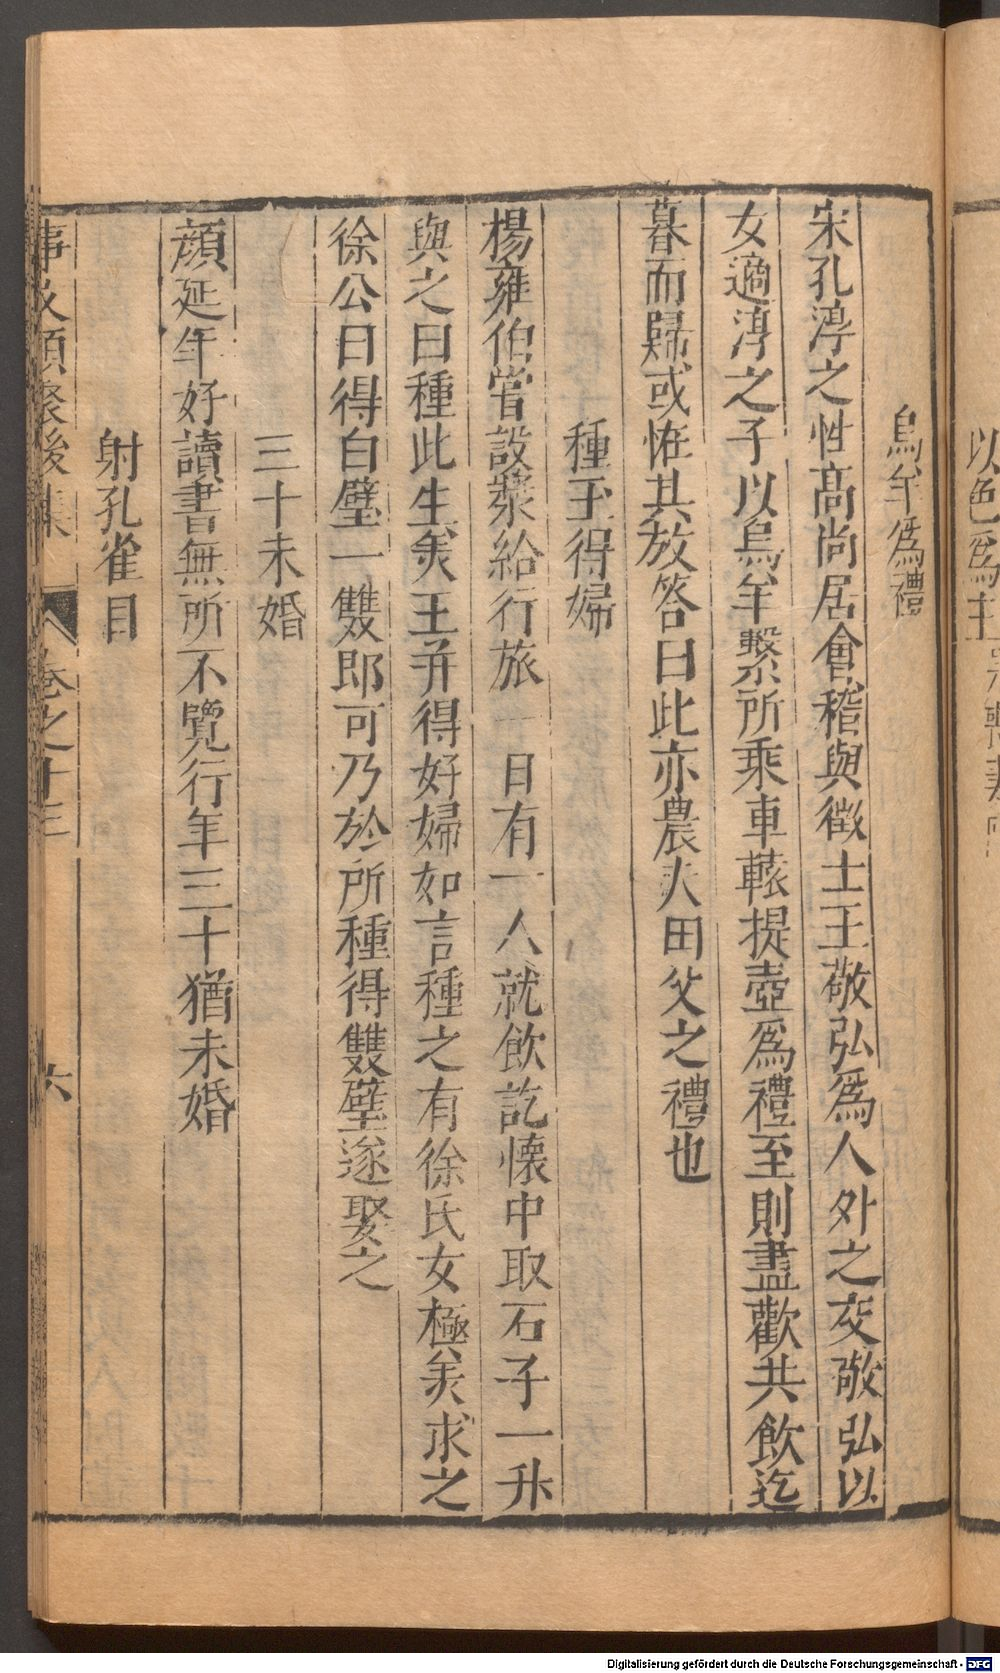 以色爲主
烏牟爲禮
宋孔淳之性高尚居會稽與徵士王敬弘爲人外之交敬弘以
女適淳之子以烏牟繫所乘車轅提壺爲禮至則盡歡共飲迄
暮而歸或恠其放答曰此亦農夫田父之禮也
種玉得婦
楊雍伯嘗設漿給行旅一日有一人就飲訖懷中取石子一升
與之曰種此生美玉并得好婦如言種之有徐氏女極美求之
徐公曰得白璧一雙郎可乃於所種得雙璧遂娶之
三十未婚
顔延年好讀書無所不覽行年三十猶未婚
射孔雀目
事文類聚後集 卷之十三 六
Digitalisierung gefördert durch die Deutsche Forschungsgemeinschaft - DFG